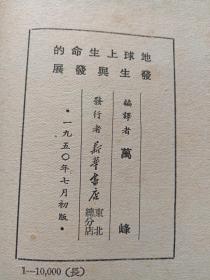 地球上生命的
發生與發展
編譯者 萬峰
發行者 新華書店 東北總分店
·一九五〇年七月初版·
1—10,000(長)